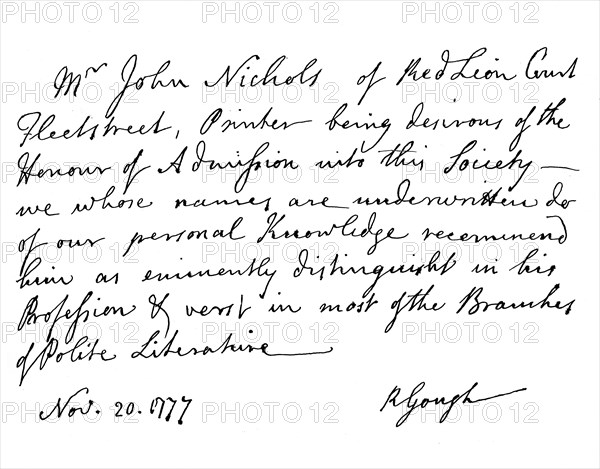 Mr John Nichols of Red Lion Court
Fleetstreet, Printer being desirous of the
Honour of Admission into this Society —
we whose names are underwritten do
of our personal Knowledge recommend
him as eminently distinguisht in his
Profession & verst in most of the Branches
of Polite Literature
Nov. 20. 1777 R Gough